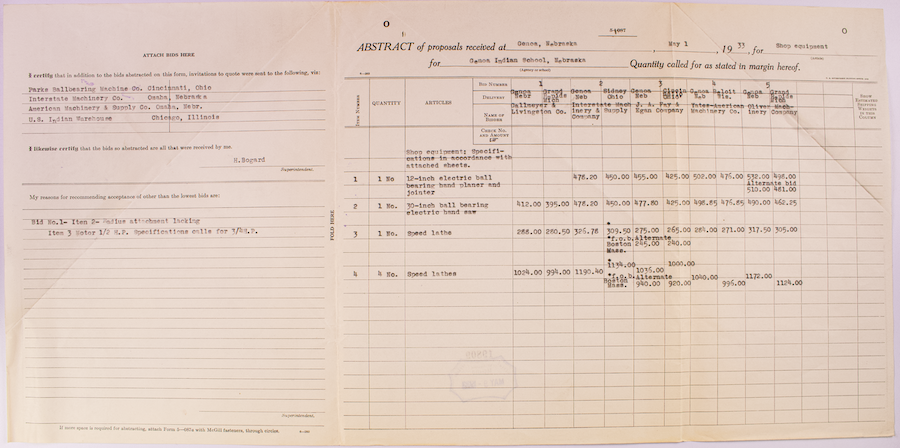 ATTACH BIDS HERE
I certify that in addition to the bids abstracted on this form, invitations to quote were sent to the following, viz:
Parks Ballbearing Machine Co. Cincinnati, Ohio
Interstate Machinery Co. Omaha, Nebraska
American Machinery & Supply Co. Omaha, Nebr.
U.S. Indian Warehouse Chicago, Illinois
I likewise certify that the bids so abstracted are all that were received by me.
H.Bogard
Superintendent.
My reasons for recommending acceptance of other than the lowest bids are:
Bid No.1- Item 2- Radius attachment lacking
Item 3 Motor 1/2 H.P. Specifications calls for 3/4H.P.
Superintendent.
If more space is required for abstracting, attach Form with McGill fasteners, through circles.
FOLD HERE
ABSTRACT of proposals received at Genoa, Nebraska, May 1, 1933, for Shop equipment
for Genoa Indian School, Nebraska Quantity called for as stated in margin hereof.
(Agency or school)
BID NUMBER 1 2 3 4 5
ITEM NUMBER QUANTITY ARTICLES
DELIVERY Genoa Nebr Grand Rapids Mich Genoa Neb Sidney Ohio Genoa Neb Genoa Neb Beloit Wis. Genoa Neb Grand Rapids
NAME OF BIDDER Gallmeyer & Livingston Co. Interstate Machinery & Supply Company J. A. Fay & Egan Company Inter-American Machinery Co. Oliver Machinery Company
CHECK NO. AND AMOUNT
SHOW ESTIMATED SHIPPING WEIGHTS IN THIS COLUMN
Shop equipment; Specifi-
cations in accordance with
attached sheets.
1 1 No 12-inch electric ball 478.20 450.00 455.00 425.00 502.00 476.00 532.00 498.00
bearing hand planer and Alternate bid
jointer 510.00 481.00
2 1 No. 30-inch ball bearing 412.00 395.00 478.20 450.00 477.80 425.00 498.85 476.85 490.00 462.25
electric band saw
3 1 No. Speed lathe 288.00 280.50 326.78 309.50 275.00 265.00 284.00 271.00 317.50 305.00
*f.o.b. Alternate
Boston 245.00 240.00
Mass.
* 1134.00 1000.00
4 4 No. Speed lathes 1024.00 994.00 1190.40 1036.00 1040.00 1172.00
*f.o.b. Alternate
Boston
Mass. 940.00 920.00 996.00 1124.00